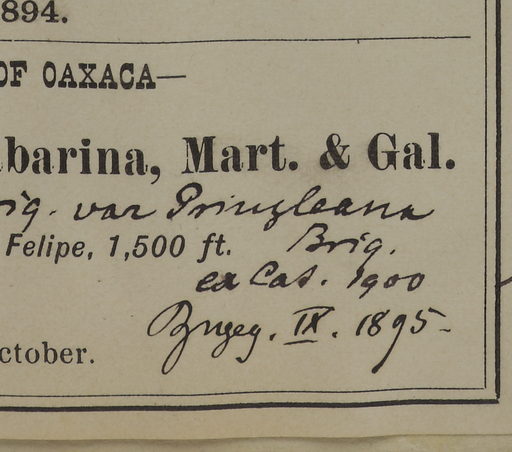 894.
OF OAXACA—
barina, Mart. & Gal.
rig. var Prinzleana
Felipe, 1,500 ft. Brig.
ex Cat. 1900
IX. 1895-
ctober.